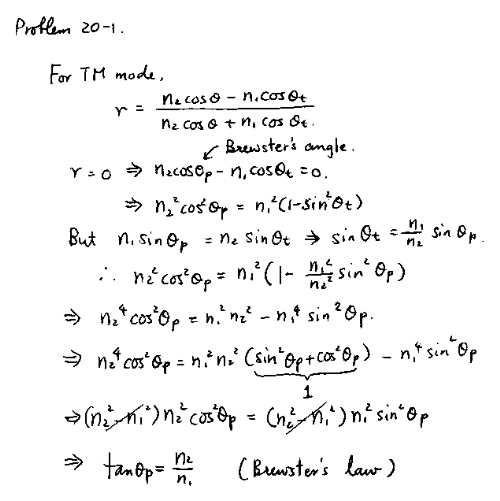 Problem 20-1.
For TM mode,
r = (n₂cosθ - n₁cosθt) / (n₂cosθ + n₁cosθt).
↙ Brewster's angle.
r = 0 ⇒ n₂cosθp - n₁cosθt = 0.
⇒ n₂²cos²θp = n₁²(1-sin²θt)
But n₁sinθp = n₂sinθt → sinθt = n₁/n₂ sinθp.
∴ n₂²cos²θp = n₁²(1 - n₁²/n₂² sin²θp)
⇒ n₂⁴cos²θp = n₁²n₂² - n₁⁴sin²θp.
⇒ n₂⁴cos²θp = n₁²n₂²(sin²θp+cos²θp) - n₁⁴sin²θp
1
⇒ (n₂²-n₁²)n₂²cos²θp = (n₂²-n₁²)n₁²sin²θp
⇒ tanθp = n₂/n₁ (Brewster's law)